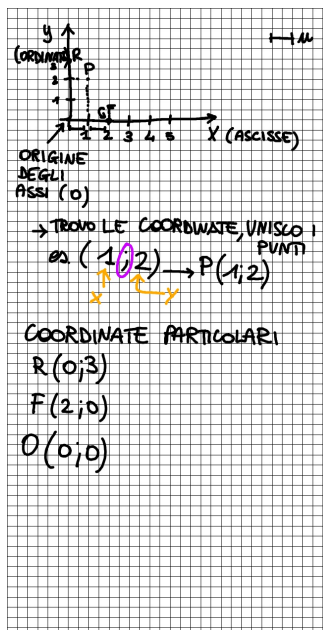 y
(ORDINATE) R
3
2 P
1
F
1 2 3 4 5
X (ASCISSE)
u
ORIGINE
DEGLI
ASSI (O)
→ TROVO LE COORDINATE, UNISCO I
PUNTI
es (1;2) → P(1;2)
x y
COORDINATE PARTICOLARI
R(0;3)
F(2;0)
O(0;0)